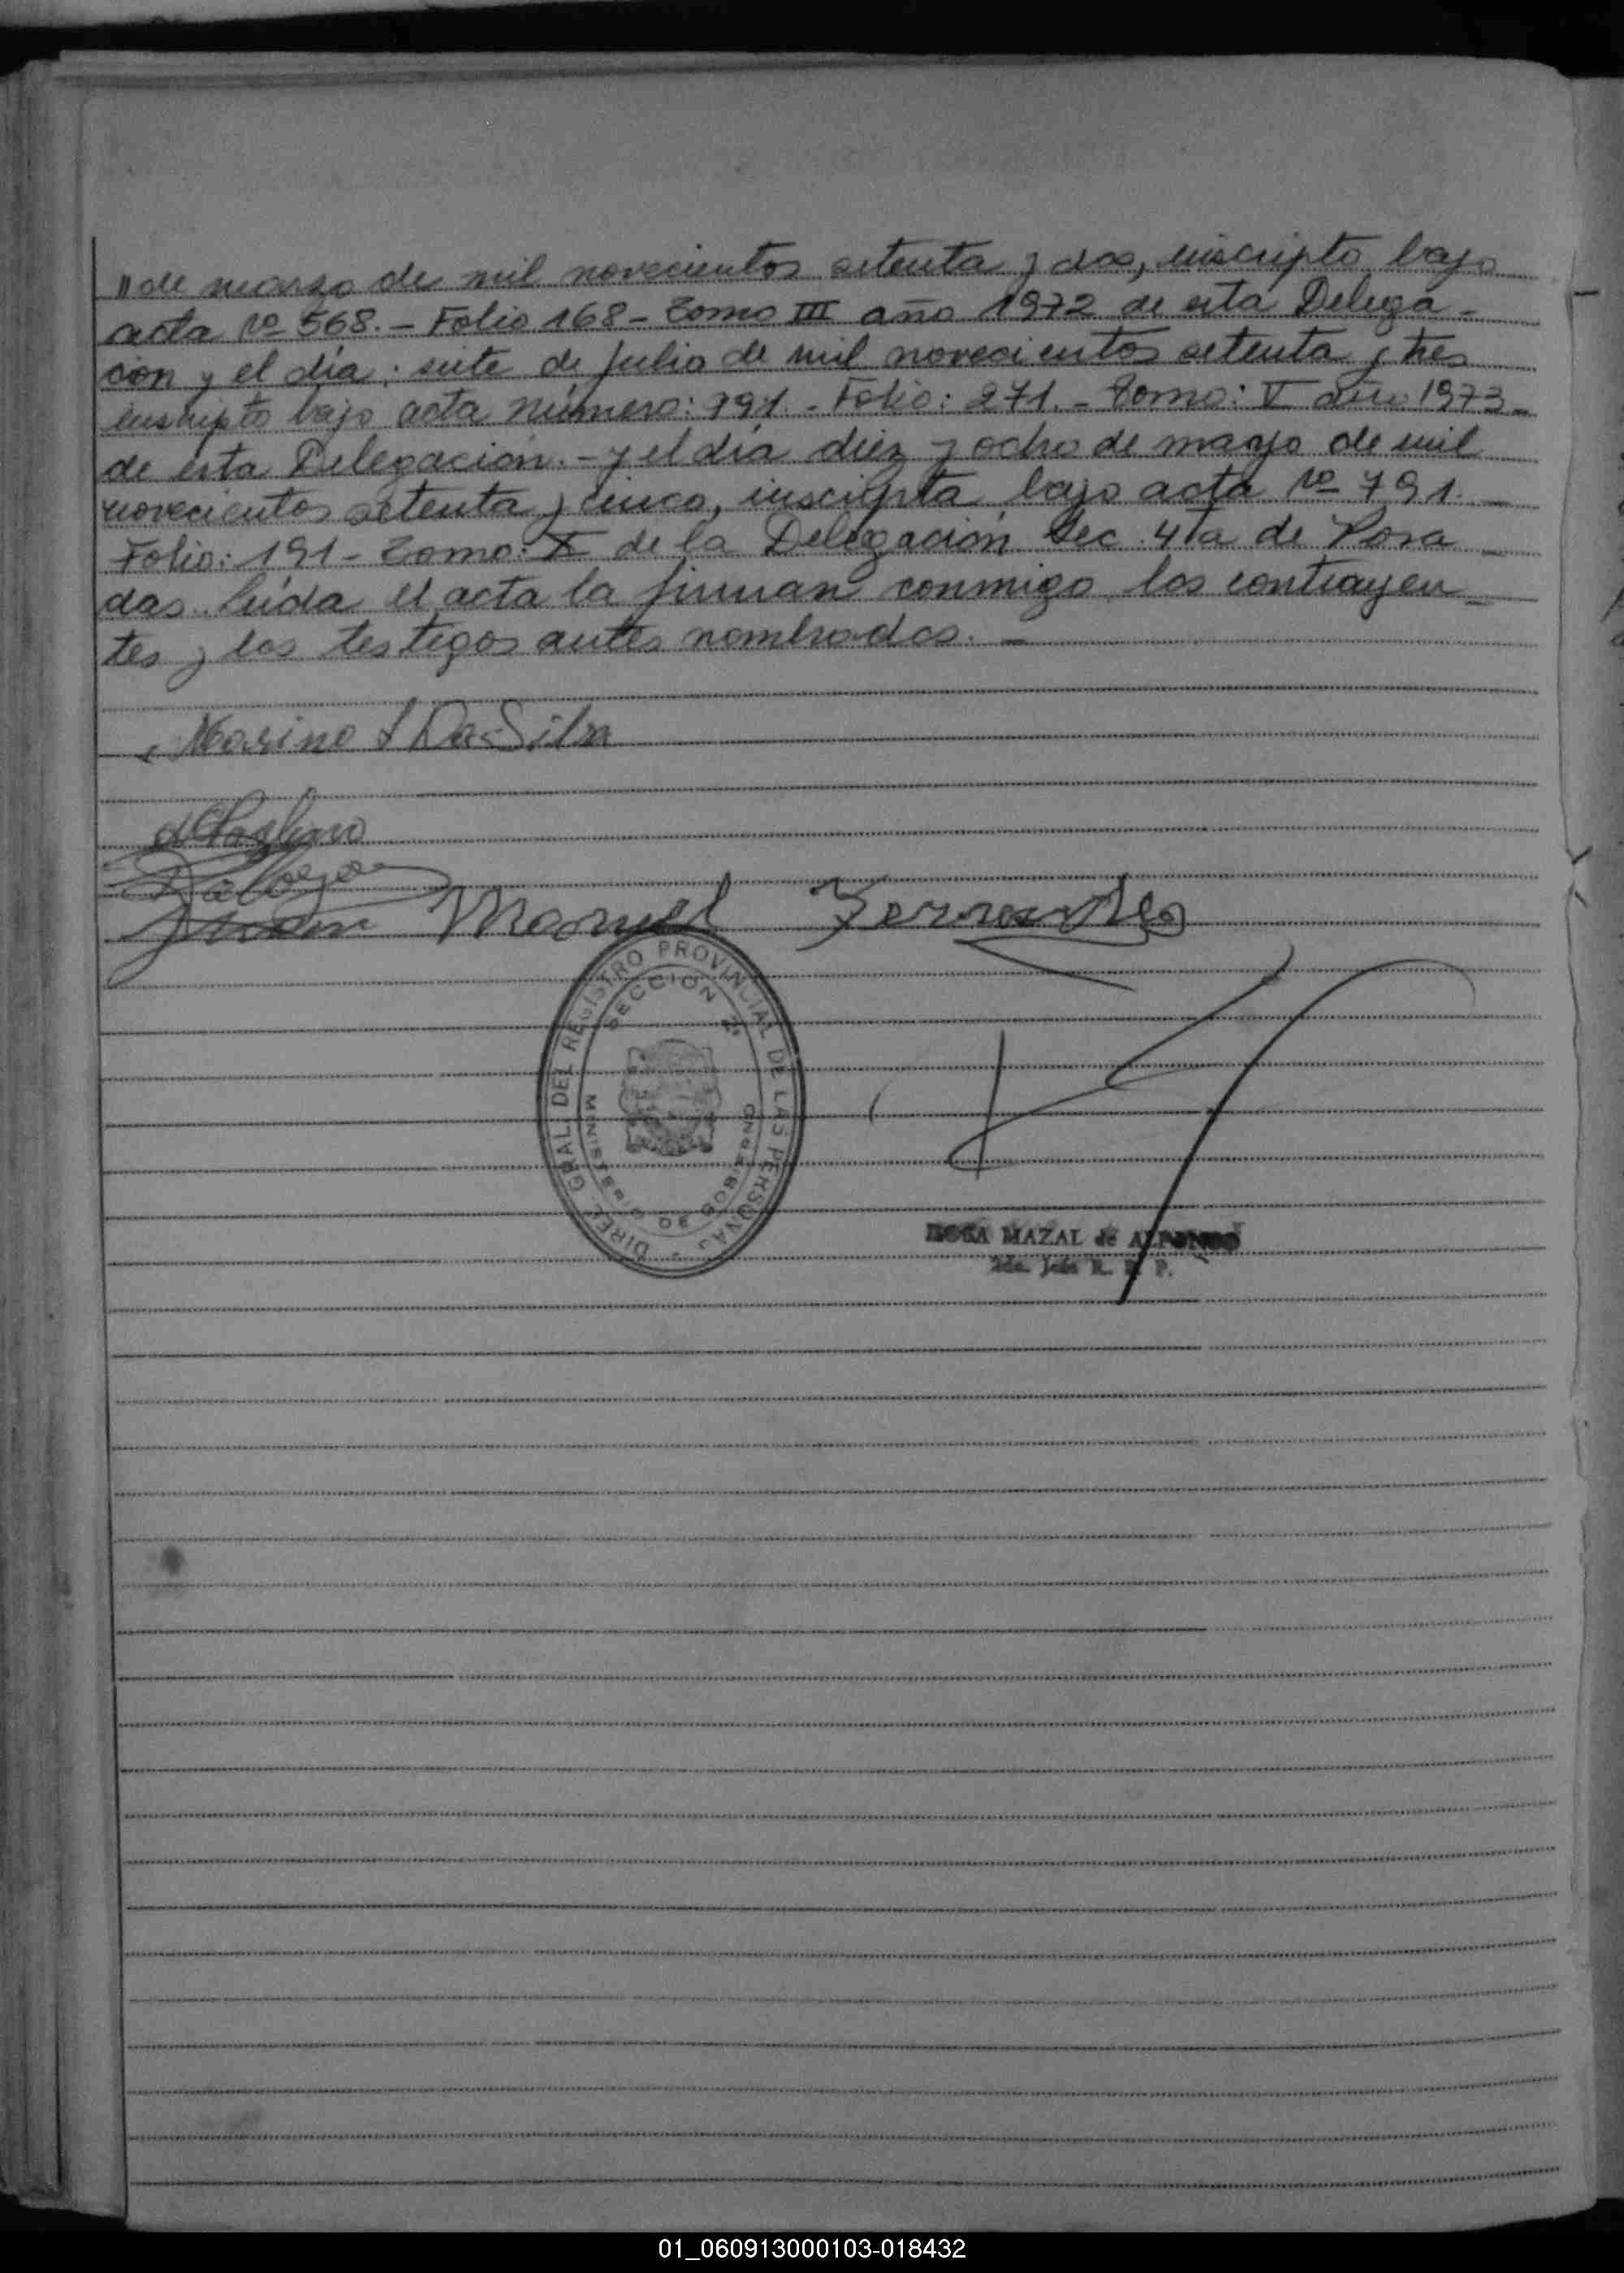 "de marzo de mil novecientos setenta y dos, inscripto bajo
acta nº 568.- Folio 168- Tomo III año 1972 de esta Delega-
ción y el día: siete de Julio de mil novecientos setenta y tres
inscripto bajo acta número: 991.- Folio: 271.- Tomo: V año 1973-
de esta Delegación.- y el día diez y ocho de mayo de mil
novecientos setenta y cinco, inscripta bajo acta nº 791.-
Folio: 191- Tomo: X de la Delegación Sec. 4ta de Posa-
das. leida el acta la firman conmigo los contrayen-
tes y los testigos antes nombrados.-
Marino DaSilva
Manuel Fernandes
DIREC. GRAL. DEL REGISTRO PROVINCIAL DE LAS PERSONAS
SECCION 2ª
MINISTERIO DE GOBIERNO
ROSA MAZAL de ALFONSO
2da. Jefe R. P. P.
01_060913000103-018432